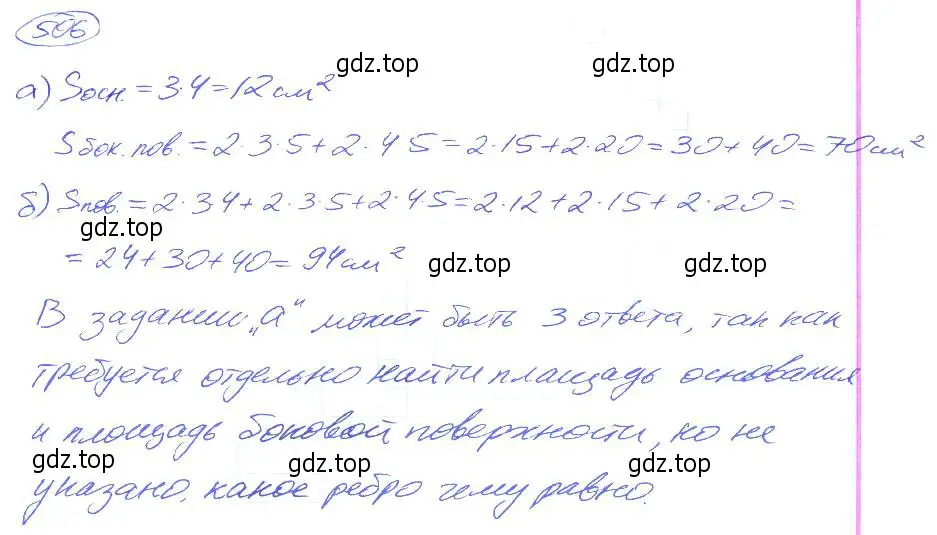 506
gdz.top gdz.top
а) Sосн. = 3·4 = 12 см²
Sбок. пов. = 2·3·5 + 2·4·5 = 2·15 + 2·20 = 30 + 40 = 70 см²
б) Sпов. = 2·3·4 + 2·3·5 + 2·4·5 = 2·12 + 2·15 + 2·20 =
gdz.top
= 24 + 30 + 40 = 94 см²
gdz.top gdz.top
В задании „а“ может быть 3 ответа, так как
требуется отдельно найти площадь основания
и площадь боковой поверхности, но не
gdz.top gdz.top gdz.top
указано, какое ребро чему равно.